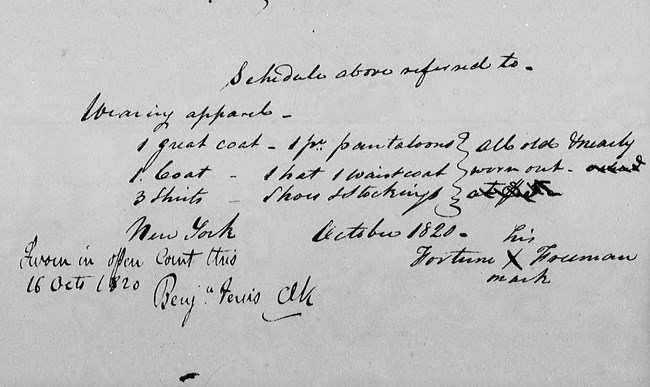 Schedule above referred to -
Wearing apparel -
1 great coat - 1 pr. pantaloons } all old & nearly
1 Coat - 1 hat 1 waistcoat } worn out -
3 Shirts - Shoes & Stockings }
New York October 1820 - his
Sworn in open Court this Fortune X Freeman
16 Octr 1820 Benjn. Ferris Clk mark